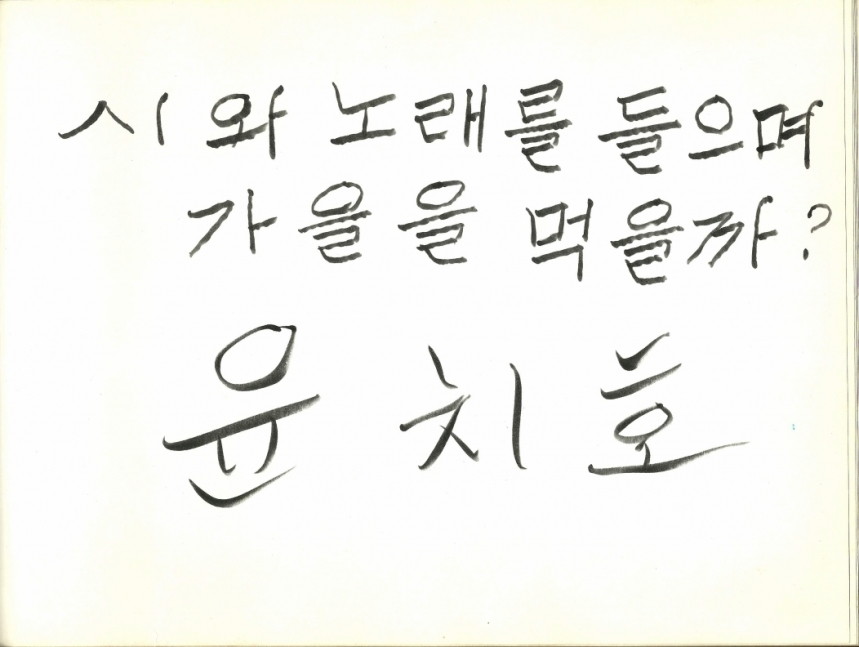 시와 노래를 들으며
가을을 먹을까?
윤치호